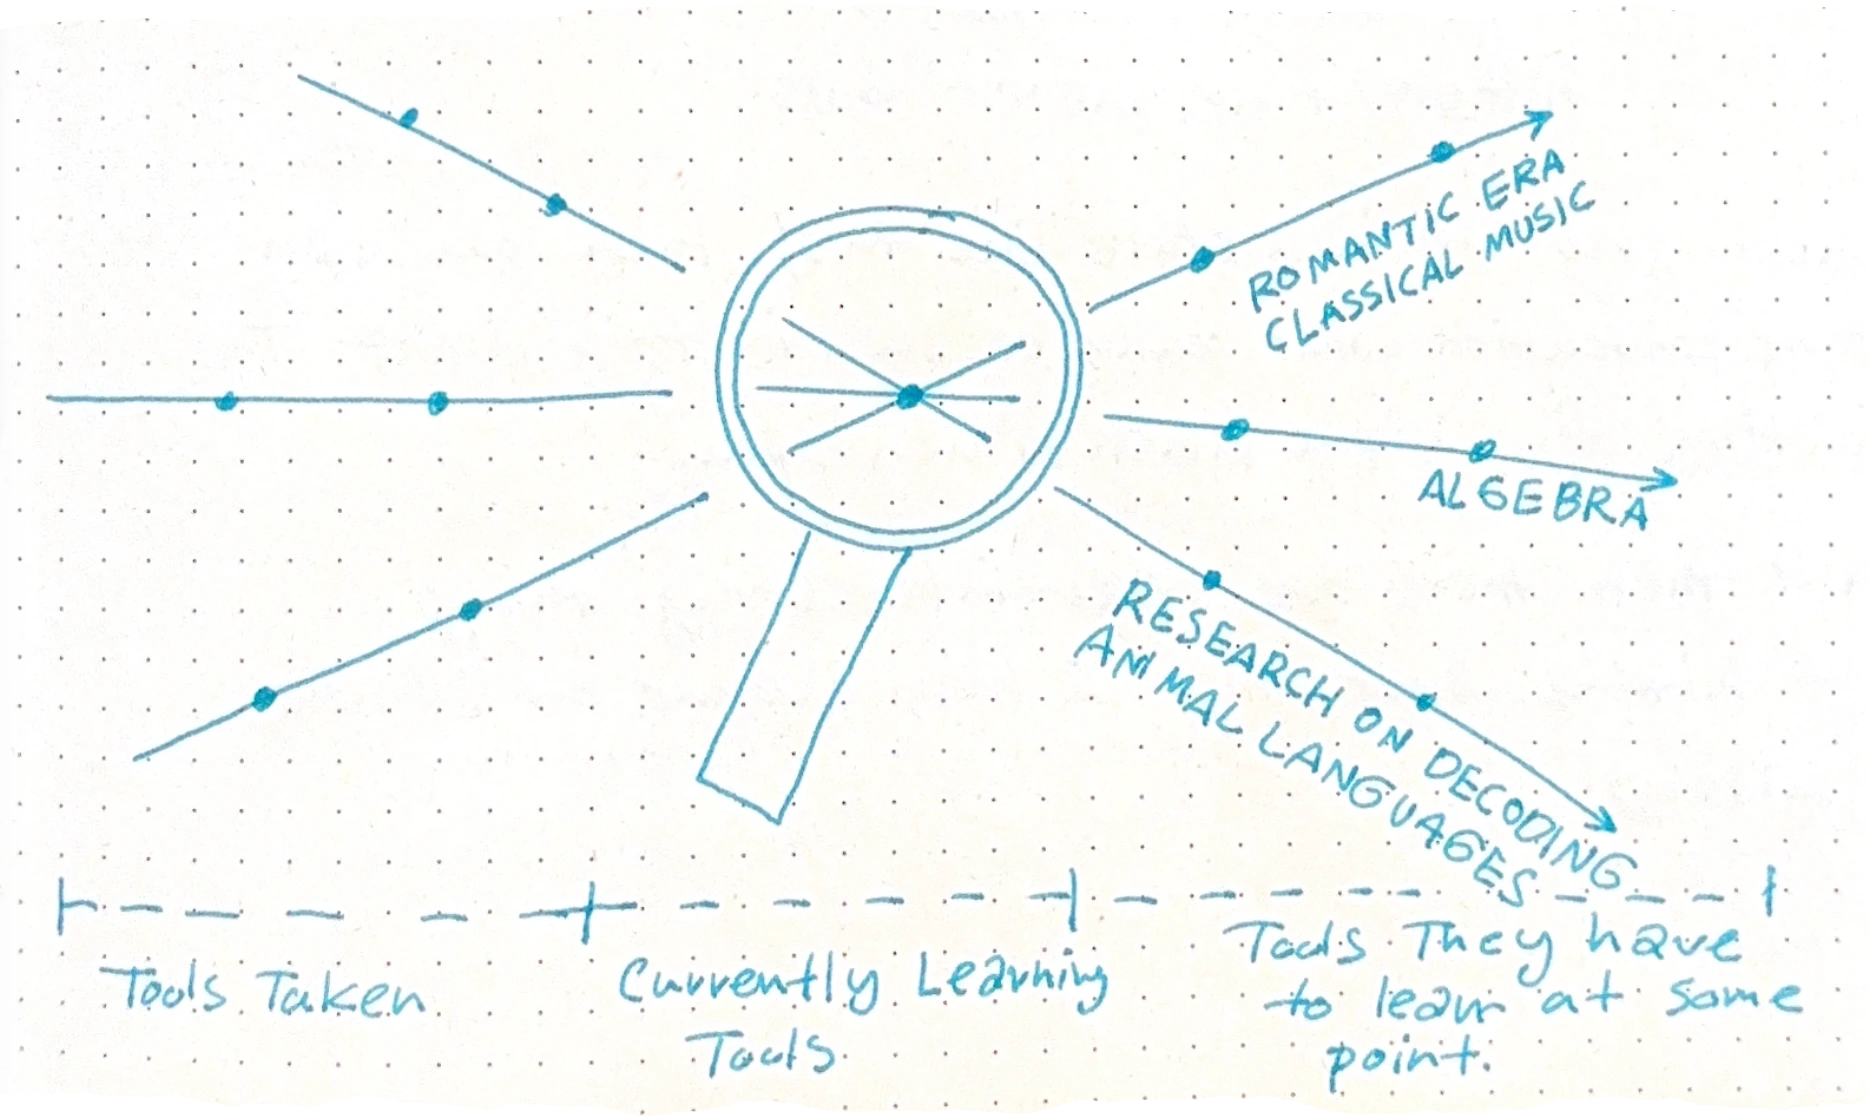 ROMANTIC ERA
CLASSICAL MUSIC
ALGEBRA
RESEARCH ON DECODING
ANIMAL LANGUAGES
Tools Taken
Currently Learning
Tools
Tools They have
to learn at some
point.